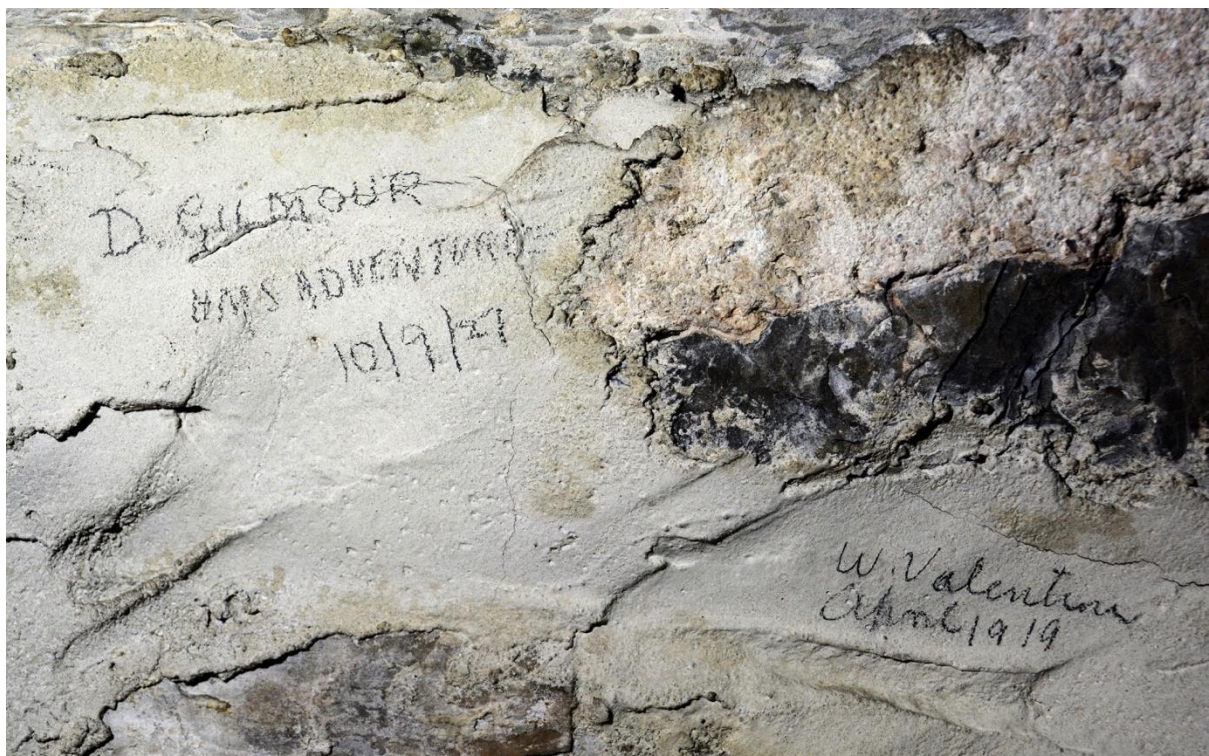 D. GILMOUR
HMS ADVENTURE
10/9/27
W. Valentine
April 1919